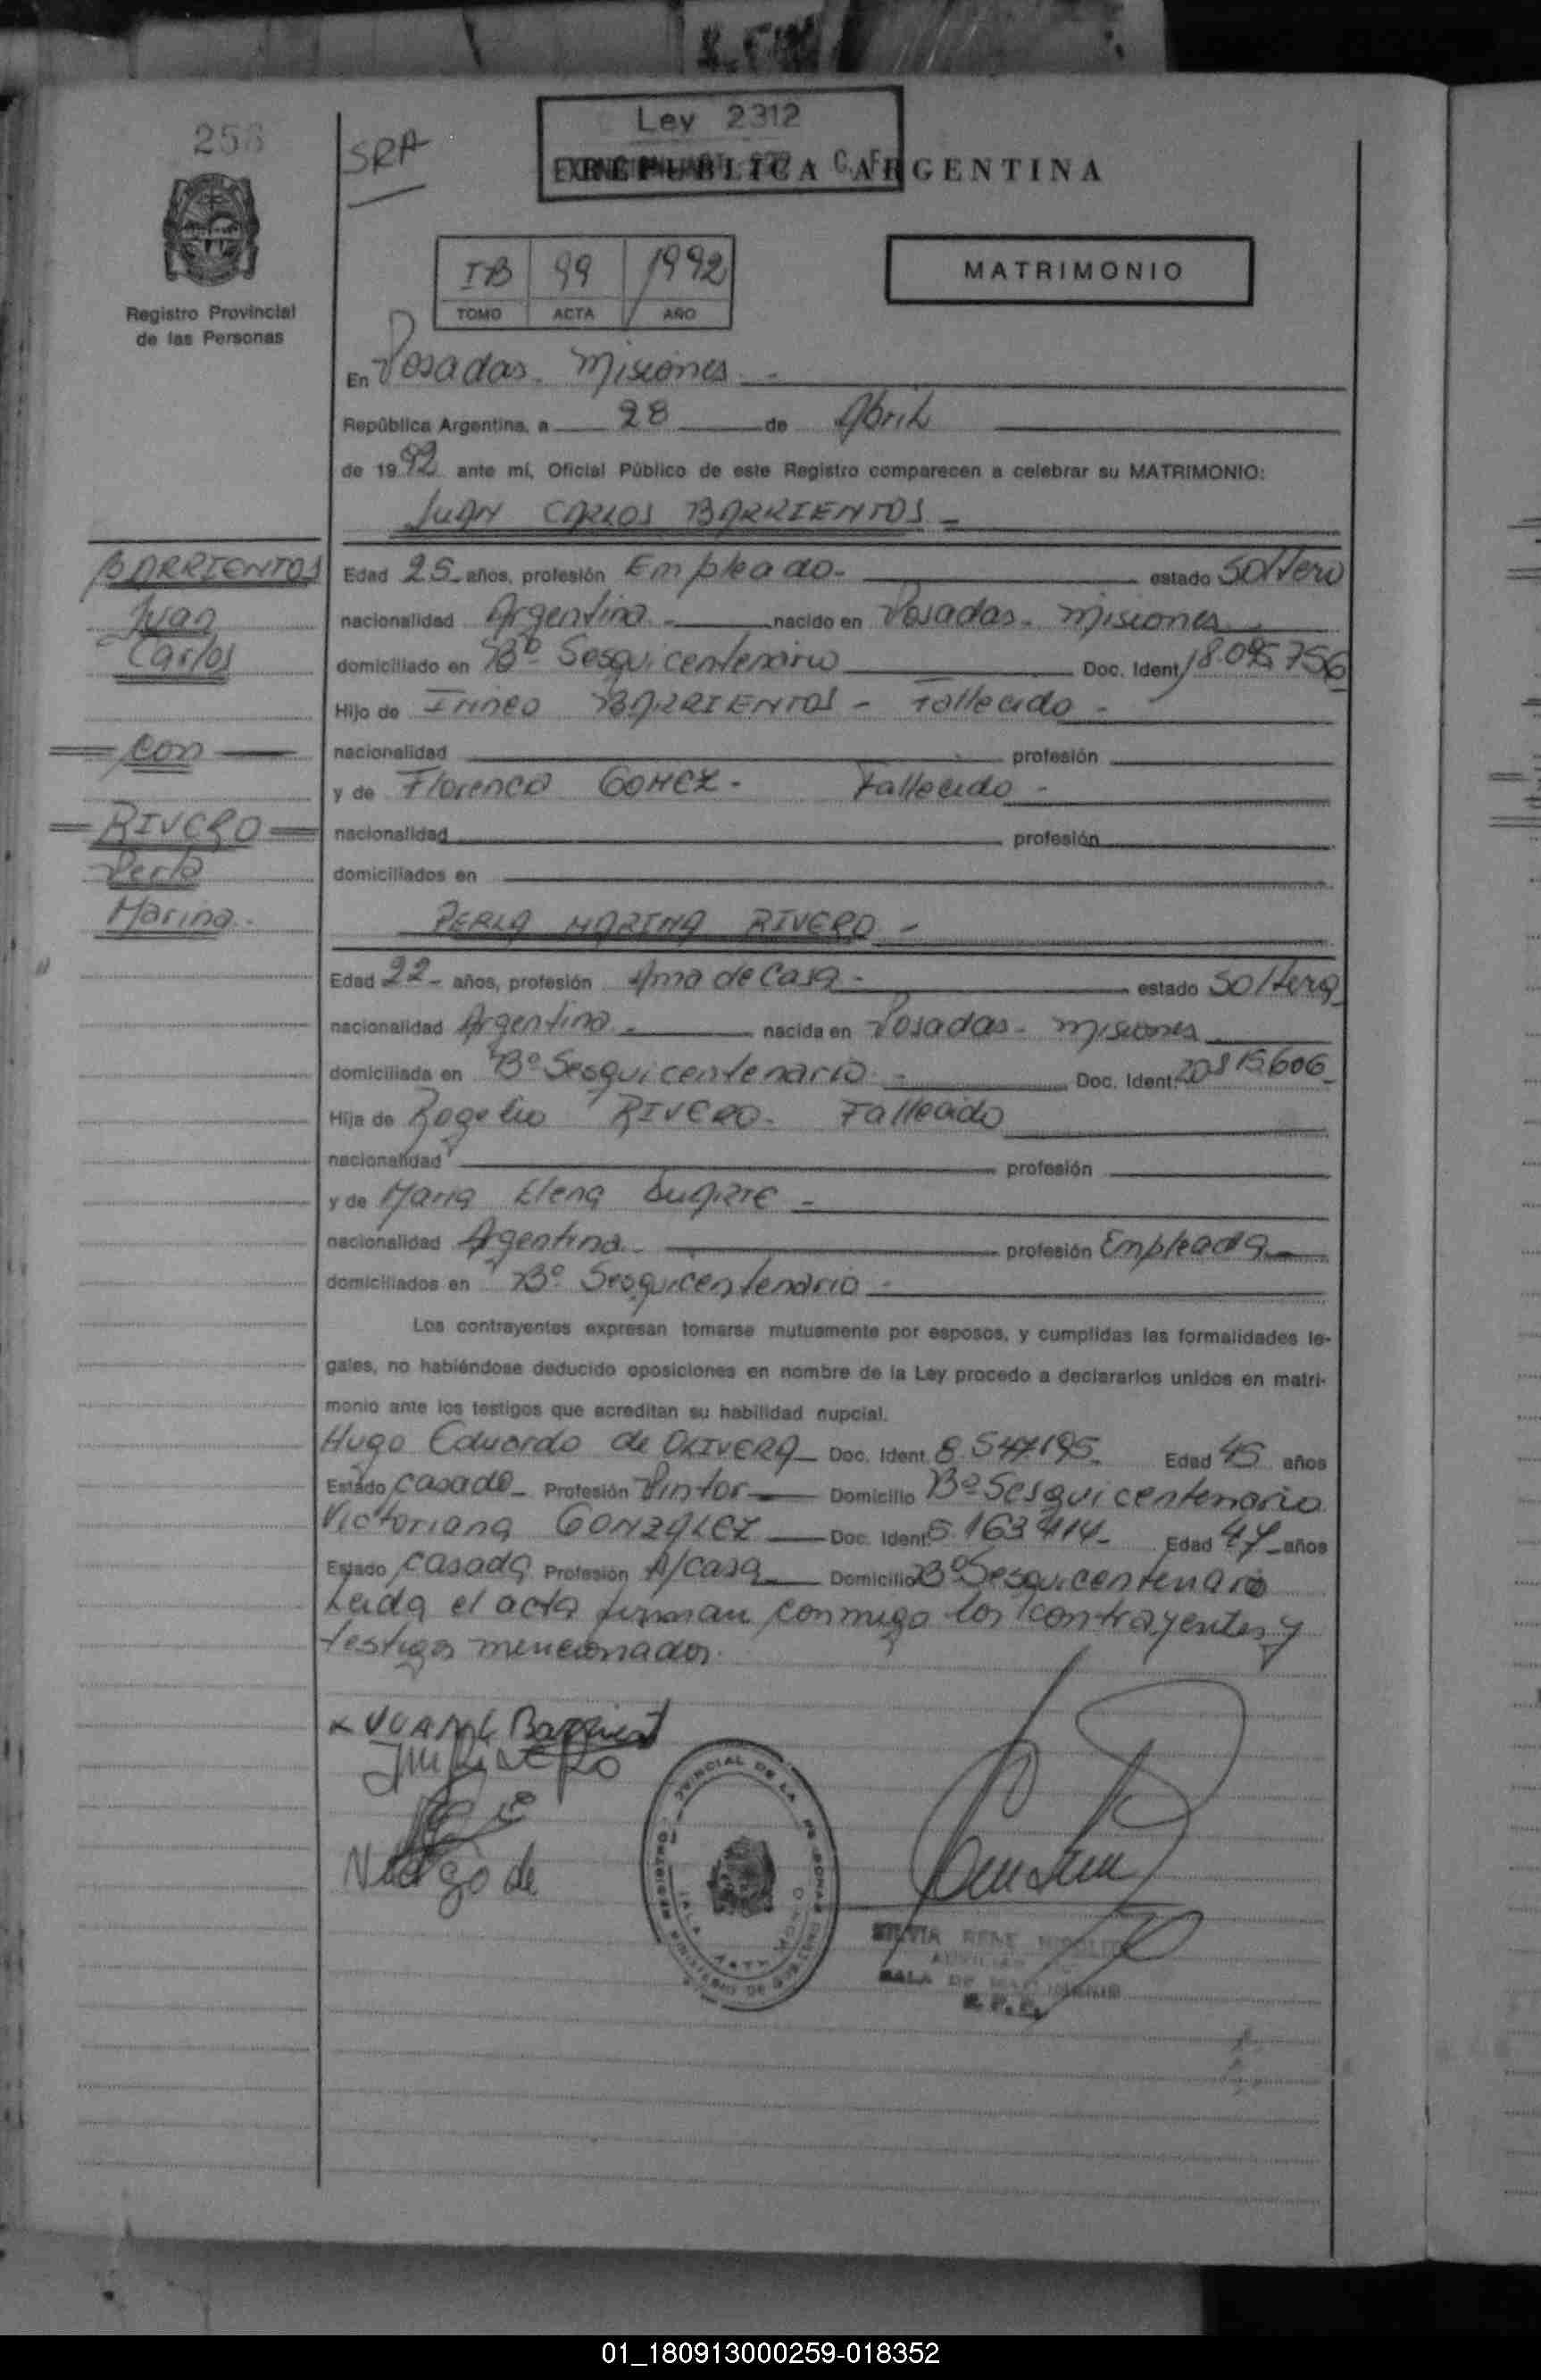 258
SRA
Ley 2312
REPUBLICA ARGENTINA
Registro Provincial
de las Personas
IB 99 1992
TOMO ACTA AÑO
MATRIMONIO
En Posadas - Misiones -
República Argentina, a 28 de Abril
de 1992 ante mí, Oficial Público de este Registro comparecen a celebrar su MATRIMONIO:
JUAN CARLOS BARRIENTOS -
BARRIENTOS
Juan
Carlos
con
RIVERO
Perla
Marina -
Edad 25 - años, profesión Empleado - estado Soltero
nacionalidad Argentina - nacido en Posadas - Misiones -
domiciliado en Bº Sesquicentenario Doc. Ident. 18.095.756
Hijo de Irineo BARRIENTOS - Fallecido -
nacionalidad profesión
y de Florencia GOMEZ - Fallecido -
nacionalidad profesión
domiciliados en
PERLA MARINA RIVERO -
Edad 22 - años, profesión Ama de Casa - estado Soltera
nacionalidad Argentina - nacida en Posadas - Misiones
domiciliada en Bº Sesquicentenario - Doc. Ident. 20815606 -
Hija de Rogelio RIVERO - Fallecido
nacionalidad profesión
y de Maria Elena -
nacionalidad Argentina - profesión Empleada
domiciliados en Bº Sesquicentenario -
Los contrayentes expresan tomarse mutuamente por esposos, y cumplidas las formalidades le-
gales, no habiéndose deducido oposiciones en nombre de la Ley procedo a declararlos unidos en matri-
monio ante los testigos que acreditan su habilidad nupcial.
Hugo Eduardo de OLIVERA - Doc. Ident. 8.547.195 - Edad 45 años
Estado Casado - Profesión Pintor Domicilio Bº Sesquicentenario
Victoriana GONZALEZ Doc. Ident. 5.163.414 - Edad 47 - años
Estado Casada Profesión A/casa Domicilio Bº Sesquicentenario
Leida el acta firman conmigo los contrayentes y
testigos mencionados.
JUAN C Barrient
Rivero
de
REGISTRO PROVINCIAL DE LAS PERSONAS
MINISTERIO DE GOBIERNO
SILVIA RENE
SALA DE MATRIMONIO
R. P. P.
01_180913000259-018352